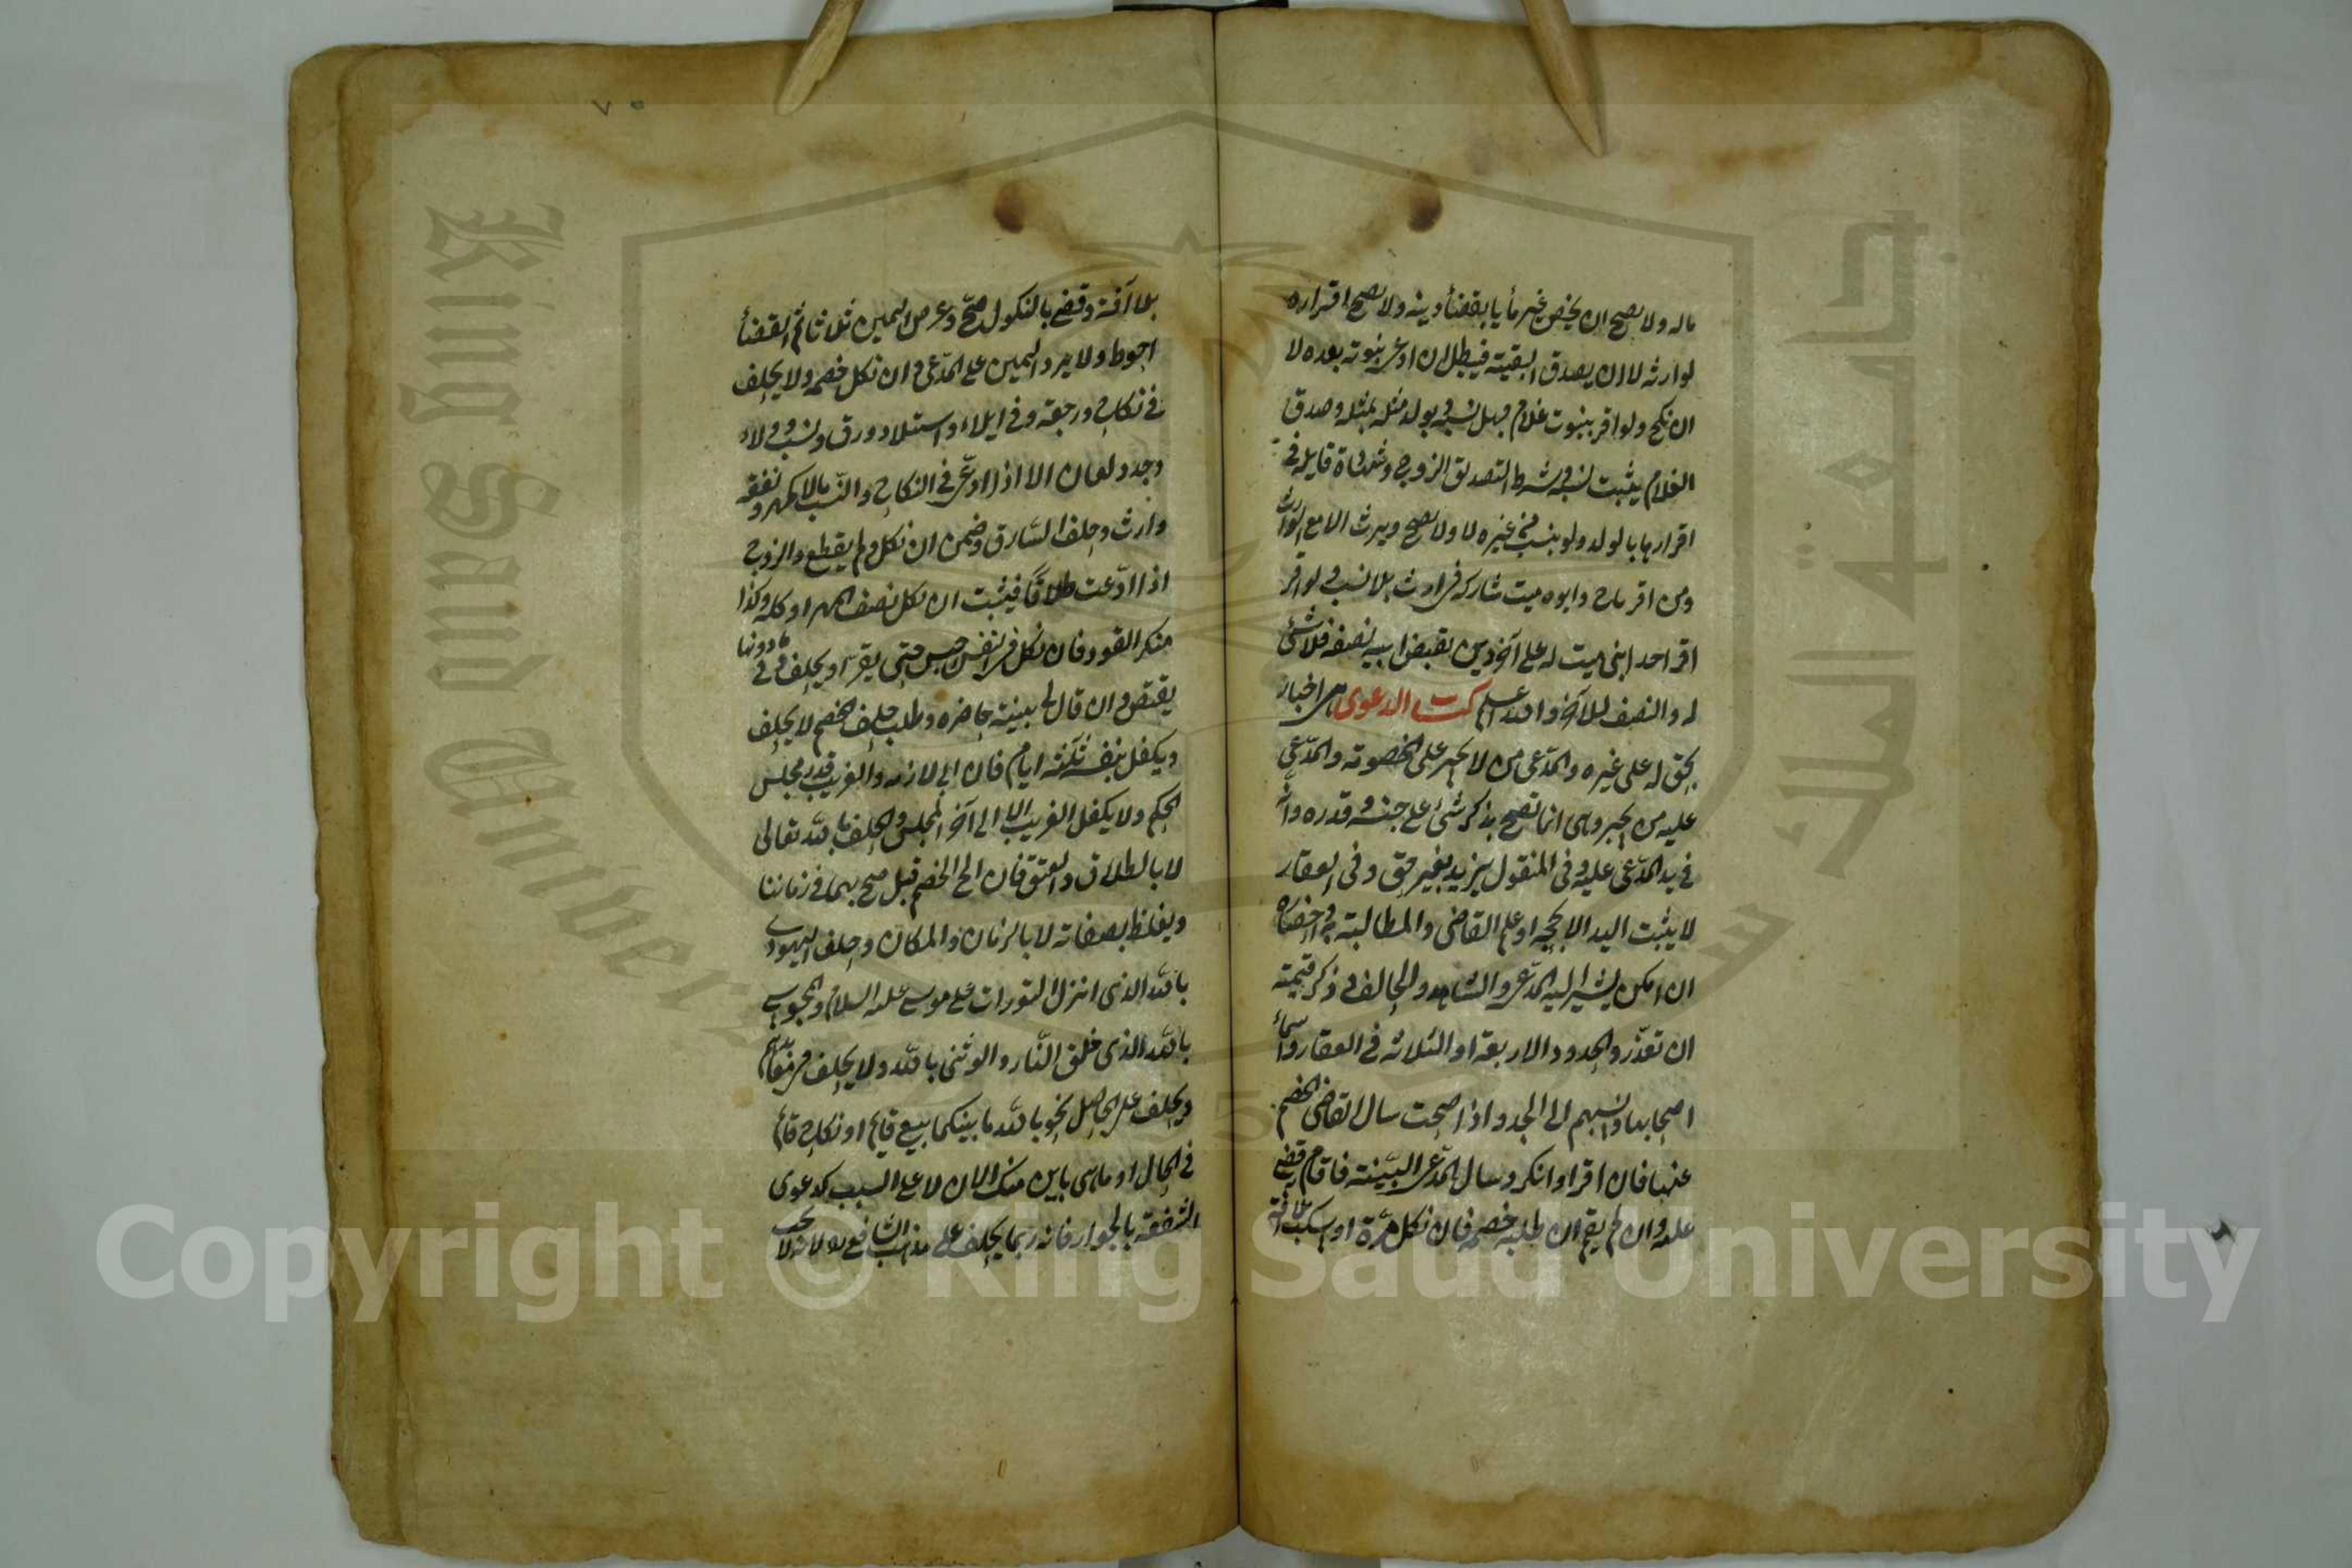 ماله ولا يصح ان يخص غيرما يا بقضأ دينه ولا يصح اقراره
لوارثه لا ان يصدق البقية فيبطل ان ادعى بنوته بعده لا
ان نكح ولو اقر ببنوت غلام جهل نسبه يولد مثله بمثله وصدق
الغلام يثبت نسبه وشرط التصديق الزوج وشهادة قابلة في
اقرارها بالولد ولو بنسب من غيره لا ولا يصح ويرث الا مع الوارث
ومن اقر باخ وابوه ميت شاركه في ارث بلا نسب ولو اقر
اقر احد ابنى ميت له على آخر دين بقبض ابيه نصفه فلا شئ
له والنصف للآخر والله اعلم كتاب الدعوى هى اخبار
بحق له على غيره والمدّعى من لا يجبر على الخصومة والمدّعى
عليه من يجبر وهى انما تصح بذكر شئ علم جنسه وقدره وانه
في يد المدّعى عليه وفى المنقول يزيد بغير حق وفى العقار
لا يثبت اليد الا بحجة او علم القاضى والمطالبة به واحضاره
ان امكن يشير اليه المدّعى والشاهد والحالف وذكر قيمته
ان تعذّر والحدود الاربعة او الثلاثة في العقار واسماء
اصحابها ونسبهم الى الجد واذا صحت سال القاضى الخصم
عنها فان اقر او انكر وسال المدّعى البيّنة فاقام قضى
عليه وان لم يقم ان طلبه خصمه فان نكل مرّة او سكت بلا آفة
بلا آفة وقضى بالنكول صحّ وعرض اليمين ثلاثا ثم القضأ
احوط ولا يرد اليمين على المدّعى وان نكل خصمه ولا يحلف
في نكاح ورجعة وفي ايلاء واستيلاد ورق ونسب وولاء
وحد ولعان الا اذا ادّعى في النكاح والنّسب مالا كمهر ونفقة
وارث وحلف السّارق وضمن ان نكل ولم يقطع والزوج
اذا ادّعت طلاقًا فيثبت ان نكل نصف المهر او كله وكذا
منكر القود فان نكل في النفس حبس حتى يقرّ او يحلف وفي ما دونها
يقتص وان قال لى بينة حاضرة وطلب حلف الخصم لا يحلف
ويكفل بنفسه ثلثة ايام فان ابى لازمه والغريب قدر مجلس
الحكم ولا يكفل الغريب الا الى آخر المجلس والحلف بالله تعالى
لا بالطلاق والعتق فان الح الخصم قيل صح بهما في زماننا
ويغلظ بصفاته لا بالزمان والمكان وحلف اليهودى
بالله الذى انزل التورات على موسى عليه السلام والمجوسى
بالله الذى خلق النّار والوثنى بالله ولا يحلف في معابدهم
ويحلف على الحاصل نحو بالله ما بينكما بيع قايم او نكاح قائم
في الحال او ما هى باين منك الان لا على السبب كدعوى
الشفعة بالجوار فانه ربما يحلف على مذهب الشافعى
٧٥
King Saud Univers
Copyright © King Saud University